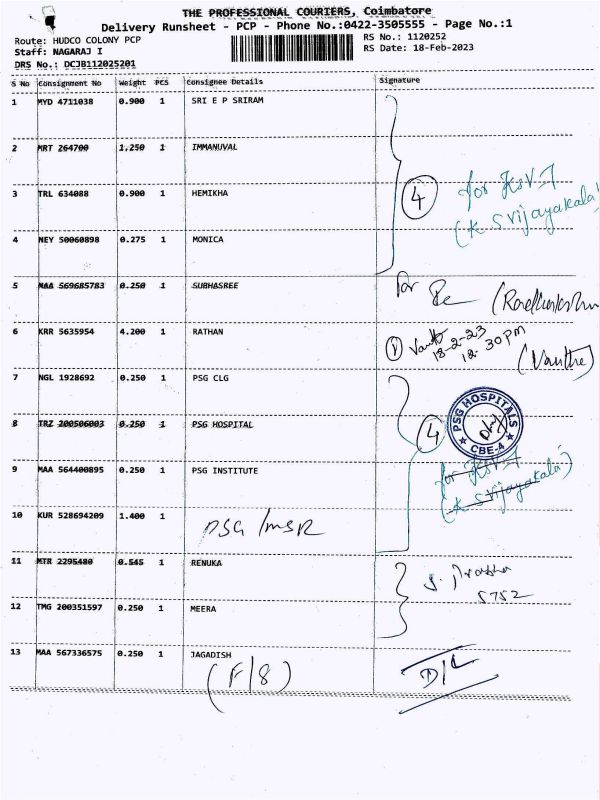 THE PROFESSIONAL COURIERS, Coimbatore
Delivery Runsheet - PCP - Phone No.:0422-3505555 - Page No.:1
Route: HUDCO COLONY PCP RS No.: 1120252
Staff: NAGARAJ I RS Date: 18-Feb-2023
DRS No.: DCJB112025201
S No Consignment No Weight PCS Consignee Details Signature
1 MYD 4711038 0.900 1 SRI E P SRIRAM
2 MRT 264700 1.250 1 IMMANUVAL
3 TRL 634088 0.900 1 HEMIKHA
4 for KSVJ
(K S Vijayakala)
4 NEY 50060898 0.275 1 MONICA
5 MAA 569685783 0.250 1 SUBHASREE
for
6 KRR 5635954 4.200 1 RATHAN
18-2-23
12.30 PM
7 NGL 1928692 0.250 1 PSG CLG
8 TRZ 200506003 0.250 1 PSG HOSPITAL
4 PSG HOSPITALS
CBE-4
9 MAA 564400895 0.250 1 PSG INSTITUTE
for KSVJ
(K S Vijayakala)
10 KUR 528694209 1.400 1 PSG /MSR
11 MTR 2295480 0.545 1 RENUKA
5752
12 TMG 200351597 0.250 1 MEERA
13 MAA 567336575 0.250 1 JAGADISH
(F/8) D/L